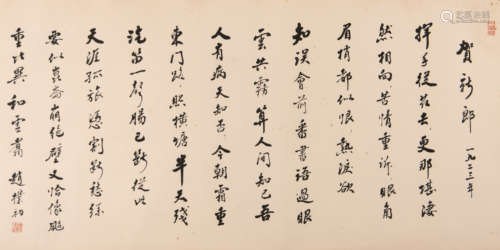 賀新郎 一九二三年
揮手從茲去更那堪淒
然相向苦情重訴眼角
眉梢都似恨熱淚欲
知誤會前番書語過眼
雲共霧算人間知己吾
人有病天知否今朝霜重
東門路照橫塘半天殘
汽笛一聲腸已斷從此
天涯孤旅憑割斷愁絲
要似崑崙崩絕壁又恰像颱
重比翼和雲翥 趙樸初